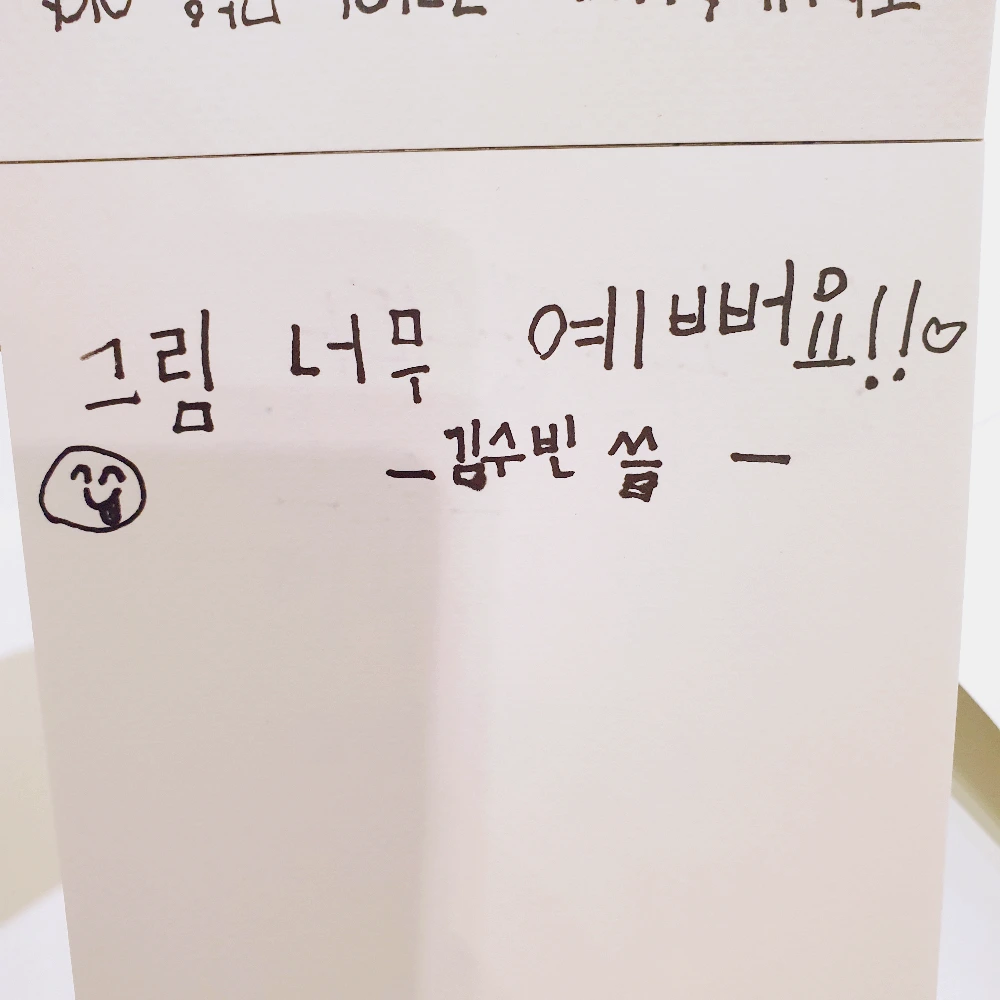 그림 너무 예뻐요!!♡
- 김수빈 씀 -